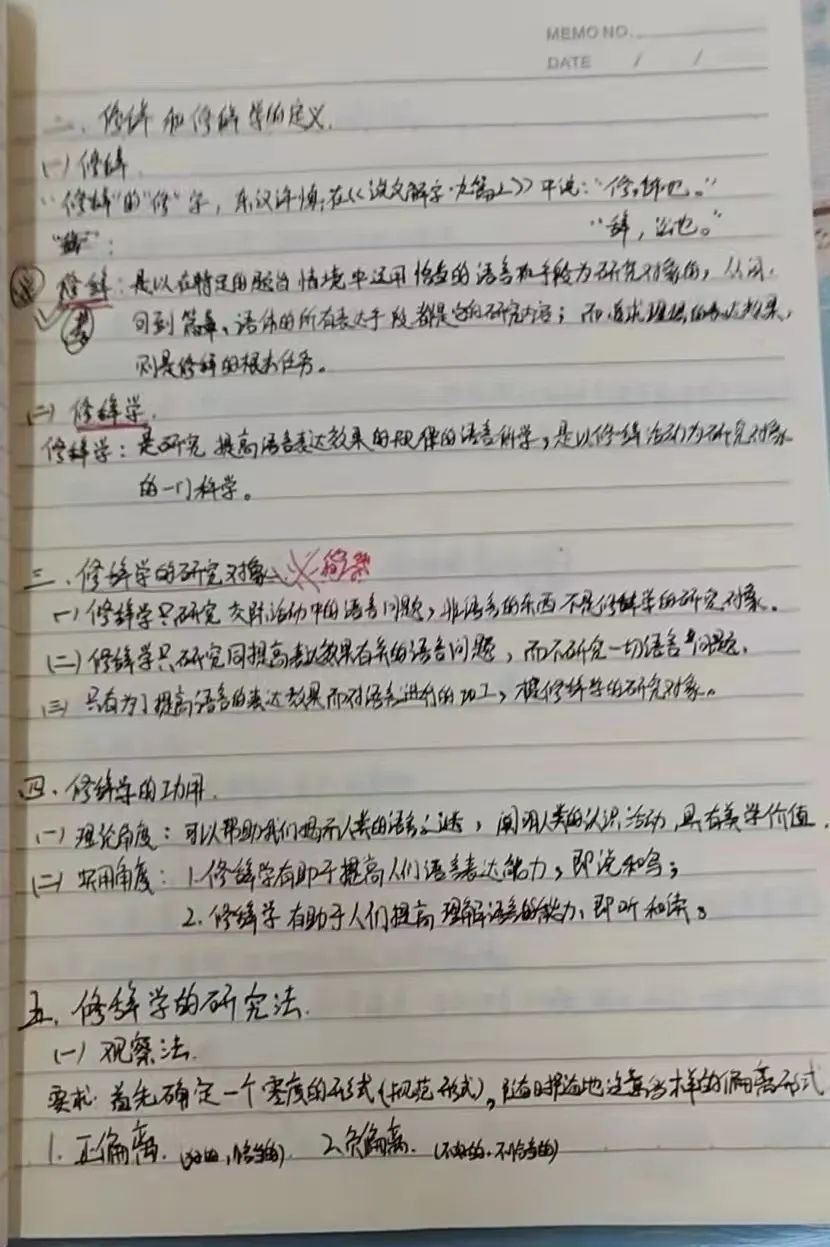 MEMO NO.
DATE / /
二、修辞和修辞学的定义.
(一) 修辞.
"修辞"的"修"字,东汉许慎,在《说文解字·九篇上》中说:"修,饰也。"
"辞": "辞,讼也。"
修辞:是以在特定的题旨情境中运用恰当的语言和手段为研究对象的,从词、
句到篇章、语体的所有表达手段都是它的研究内容;而追求理想的表达效果,
则是修辞的根本任务。
(二) 修辞学.
修辞学:是研究提高语言表达效果的规律的语言科学,是以修辞活动为研究对象
的一门科学。
三、修辞学的研究对象 简答
(一) 修辞学只研究交际活动中的语言问题,非语言的东西不是修辞学的研究对象。
(二) 修辞学只研究同提高表达效果有关的语言问题,而不研究一切语言问题。
(三) 只有为了提高语言的表达效果而对语言进行的加工,才是修辞学的研究对象。
四、修辞学的功用.
(一) 理论角度:可以帮助我们揭示人类的语言之谜,阐明人类的认识活动,具有美学价值.
(二) 实用角度:1.修辞学有助于提高人们语言表达能力,即说和写;
2.修辞学有助于人们提高理解语言的能力,即听和读。
五、修辞学的研究法.
(一) 观察法.
要求:首先确定一个零度的形式(规范形式),随时随地注意各式各样的偏离形式
1. 正偏离. (好的,恰当的) 2.负偏离. (不好的.不恰当的)